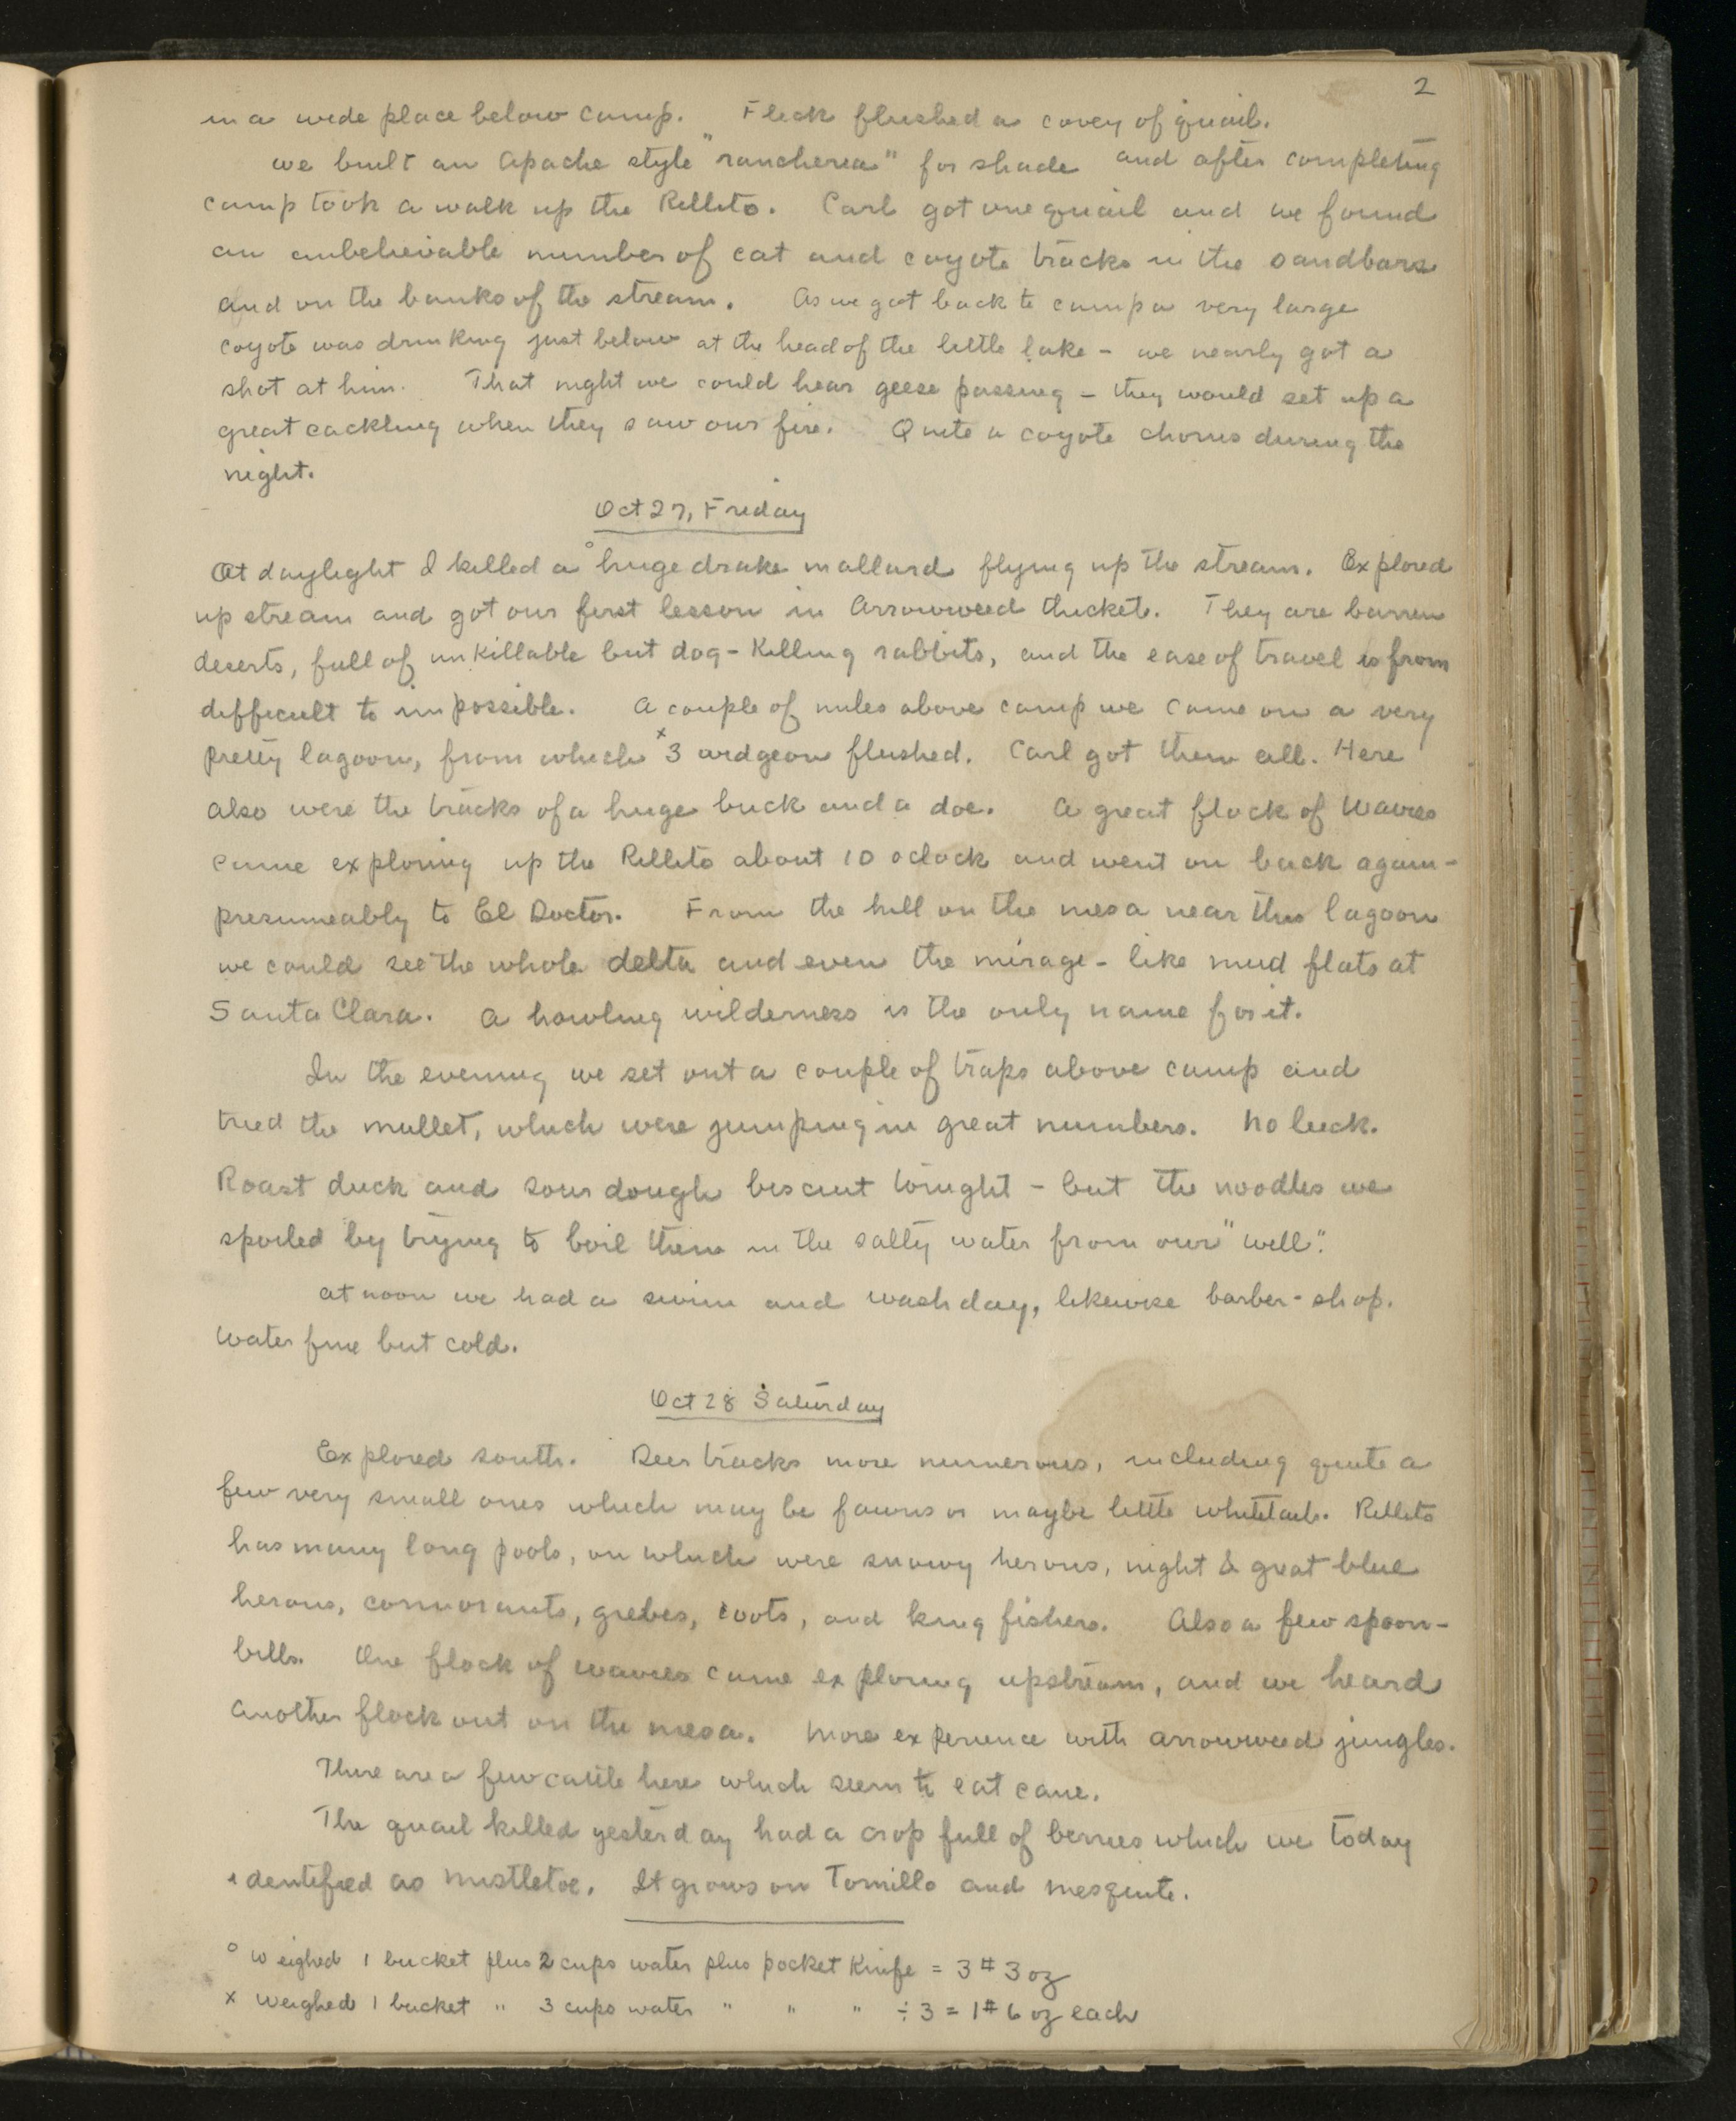 2
in a wide place below camp. Flick flushed a covey of quail.
we built an Apache style "rancheria" for shade and after completing
camp took a walk up the Rillito. Carl got one quail and we found
an unbelievable number of cat and coyote tracks in the sandbars
and on the banks of the stream. As we got back to camp a very large
coyote was drinking just below at the head of the little lake - we nearly got a
shot at him. That night we could hear geese passing - they would set up a
great cackling when they saw our fire. Quite a coyote chorus during the
night.
Oct 27, Friday
At daylight I killed a ° huge drake mallard flying up the stream. Explored
up stream and got our first lesson in Arrowweed thickets. They are barren
deserts, full of unkillable but dog-killing rabbits, and the ease of travel is from
difficult to impossible. A couple of miles above camp we came on a very
pretty lagoon, from which x 3 widgeon flushed. Carl got them all. Here
also were the tracks of a huge buck and a doe. A great flock of Wavies
came exploring up the Rillito about 10 oclock and went on back again -
presumeably to El Doctor. From the hill on the mesa near this lagoon
we could see the whole delta and even the mirage-like mud flats at
Santa Clara. A howling wilderness is the only name for it.
In the evening we set out a couple of traps above camp and
tried the mullet, which were jumping in great numbers. No luck.
Roast duck and sour dough biscuit tonight - but the noodles we
spoiled by trying to boil them in the salty water from our "well".
At noon we had a swim and wash day, likewise barber-shop.
Water fine but cold.
Oct 28 Saturday
Explored south. Deer tracks more numerous, including quite a
few very small ones which may be fawns or maybe little whitetails. Rillito
has many long pools, on which were snowy herons, night & great blue
herons, cormorants, grebes, coots, and king fishers. Also a few spoon-
bills. One flock of wavies came exploring upstream, and we heard
another flock out on the mesa. More experience with arrowweed jungles.
There are a few cattle here which seem to eat cane.
The quail killed yesterday had a crop full of berries which we today
identified as mistletoe. It grows on Tornillo and mesquite.
° Weighed 1 bucket plus 2 cups water plus pocket knife = 3# 3 oz
x Weighed 1 bucket " 3 cups water " " " ÷ 3 = 1# 6 oz each